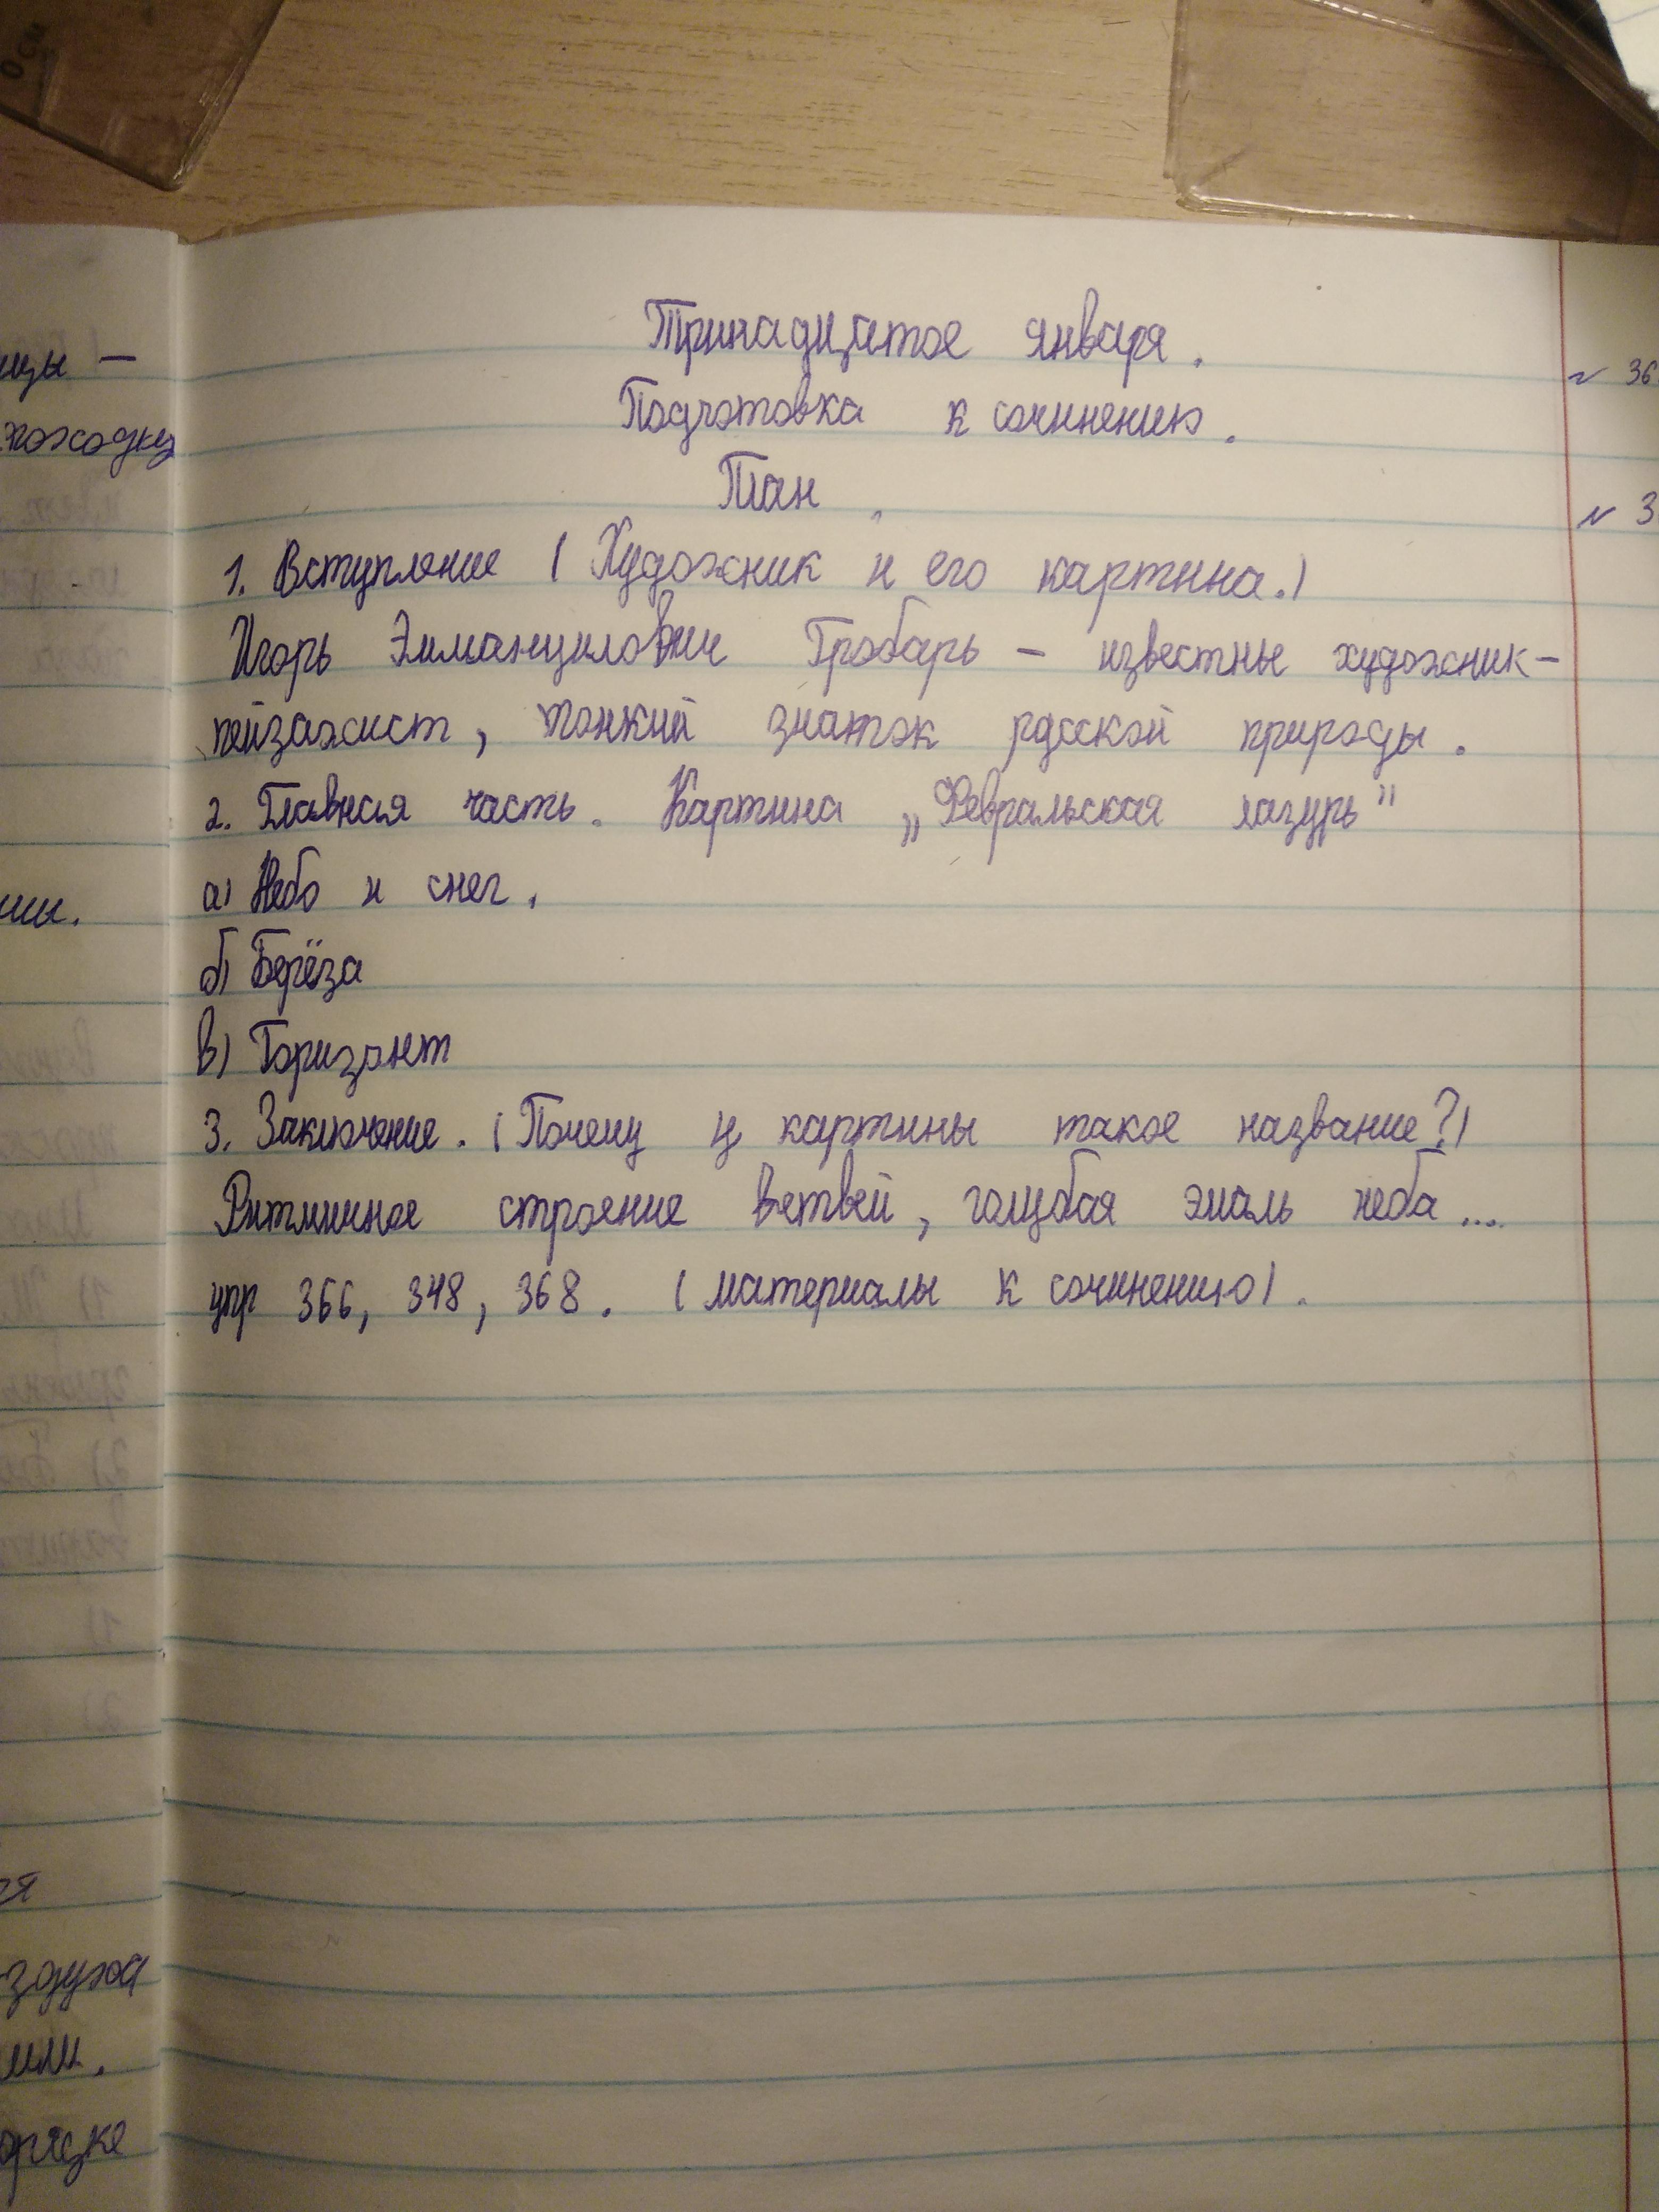 Тринадцатое января.
Подготовка к сочинению.
План.
1. Вступление (Художник и его картина.)
Игорь Эммануилович Грабарь – известные художник-
пейзажист, тонкий знаток русской природы.
2. Главная часть. Картина „Февральская лазурь"
а) Небо и снег.
б) Берёза
в) Горизонт
3. Заключение. (Почему у картины такое название?)
Ритмичное строение ветвей, голубая эмаль неба....
упр 366, 348, 368. (материалы к сочинению).